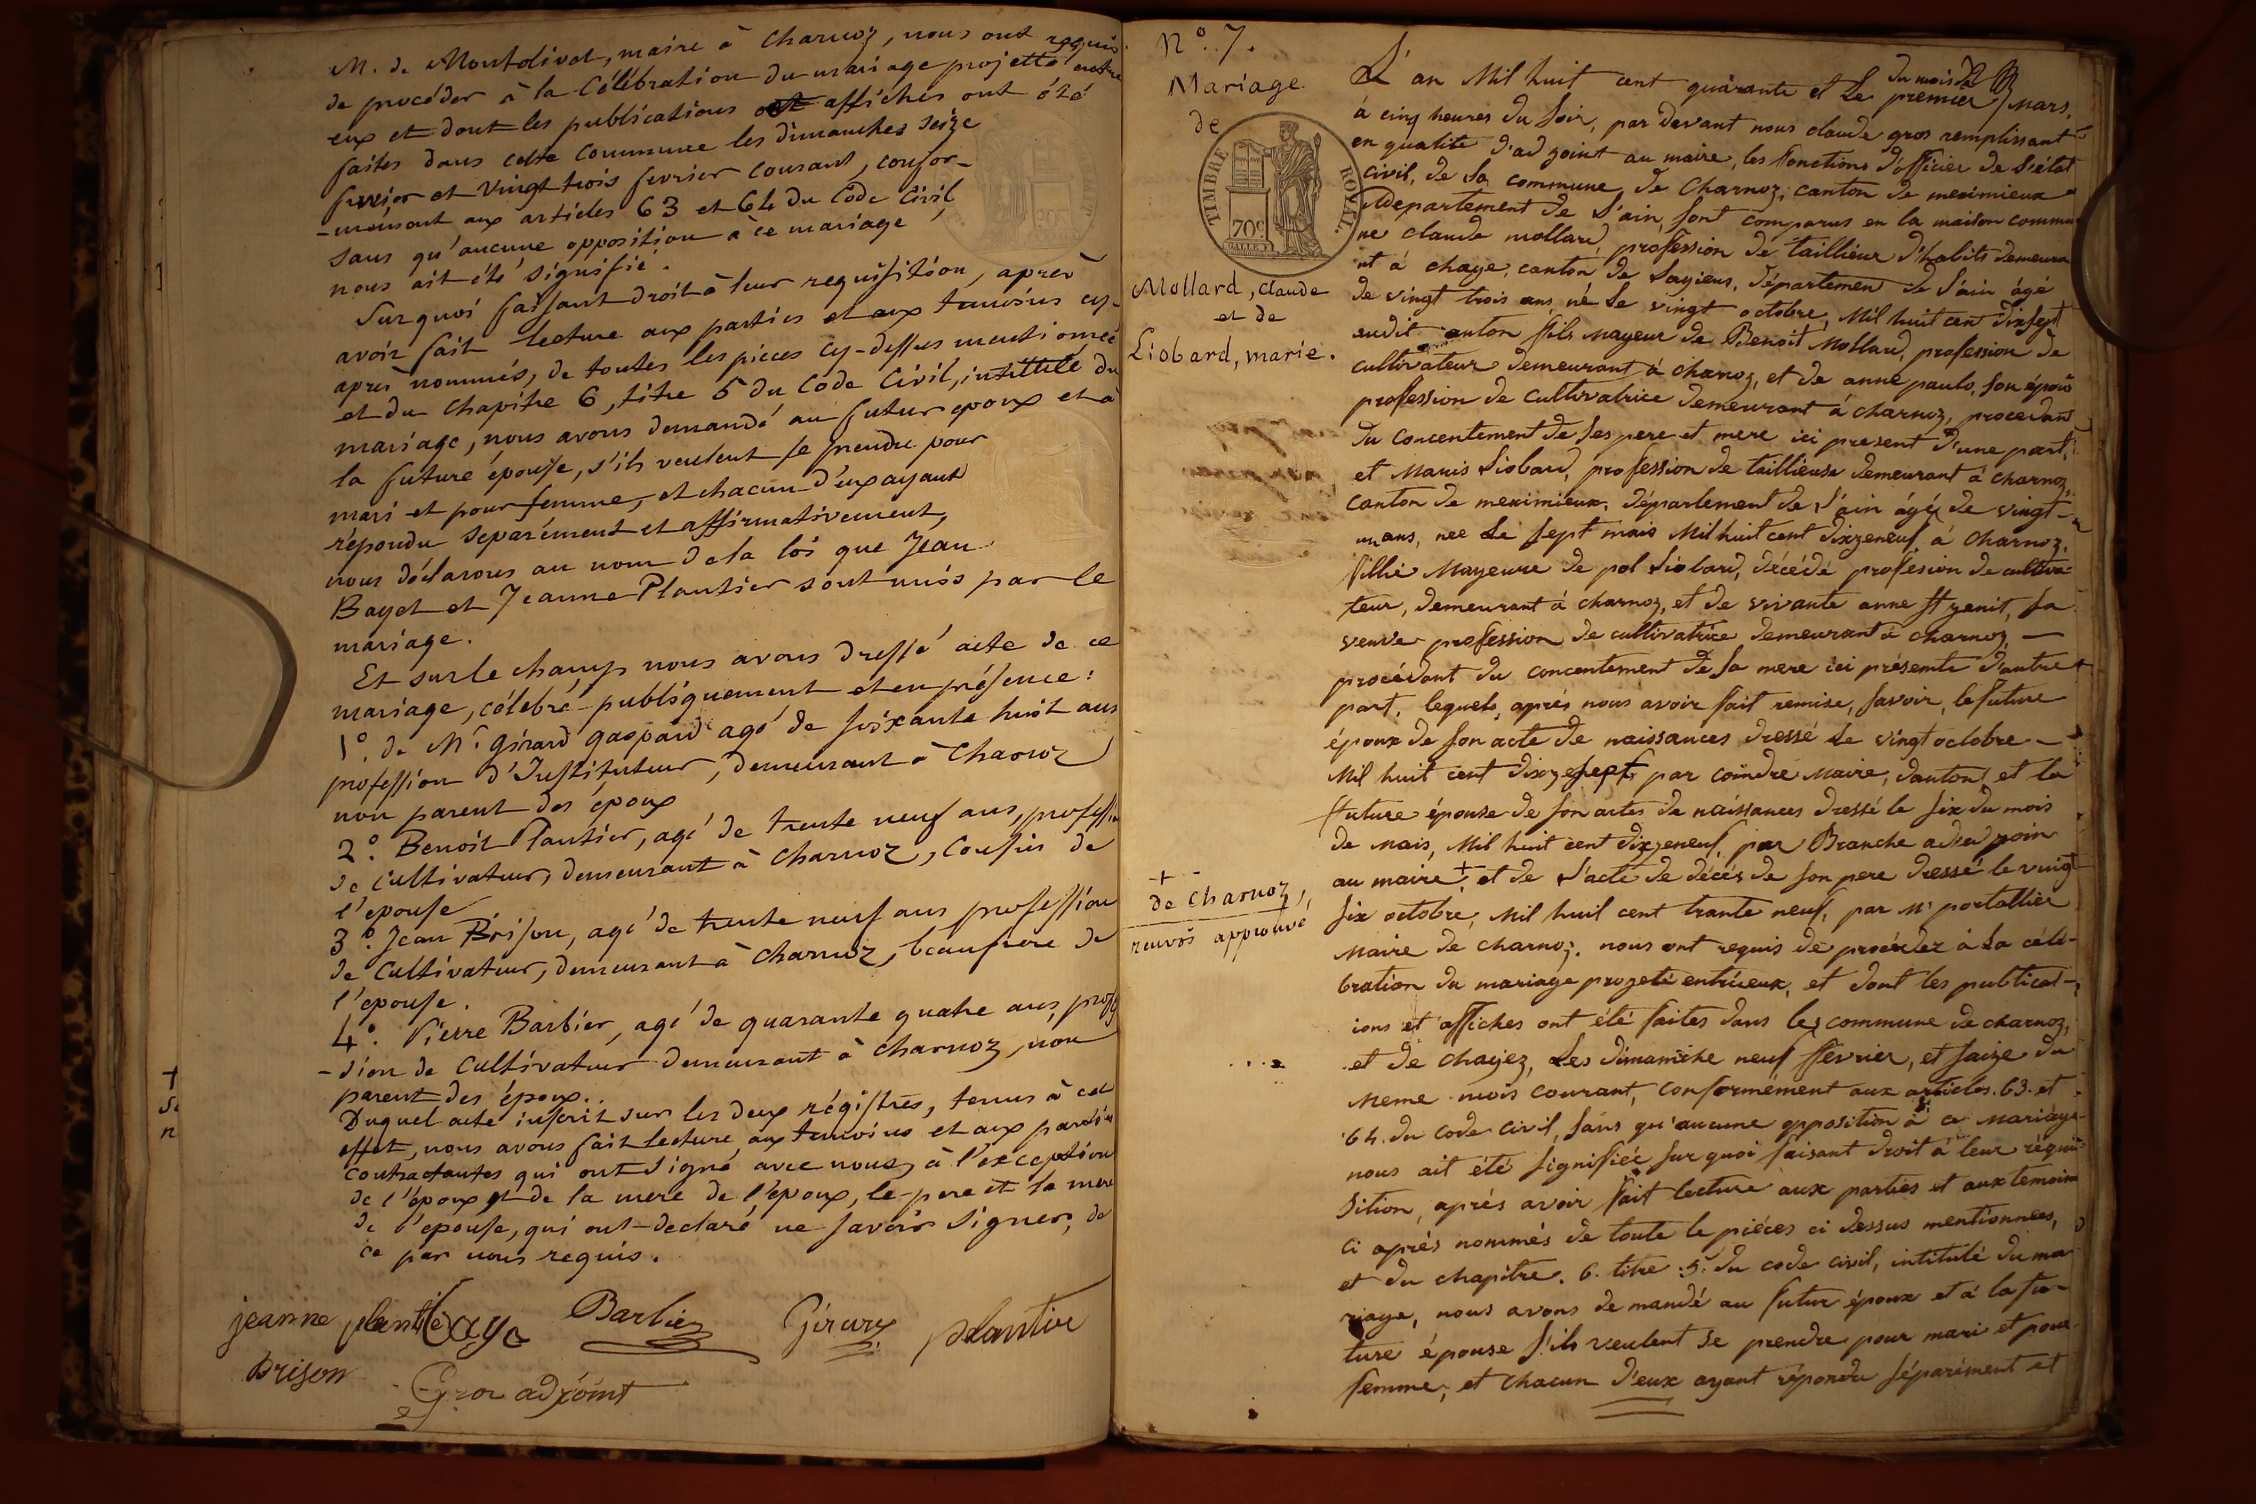 M. de Montolivet, maire à Charnoz, nous ont requis
de procéder à la Célébration du mariage projetté entre
eux et dont les publications et affiches ont été
faites dans cette Commune les dimanches seize
fevrier et vingt trois fevrier courant, confor-
-mément aux articles 63 et 64 du Code Civil,
sans qu'aucune opposition à ce mariage
nous ait été signifié.
Sur quoi faisant droit à leur requisition, après
avoir fait lecture aux parties et aux temoins cy-
après nommés, de toutes les pieces cy-dessus mentionnée
et du Chapitre 6, titre 5 du Code Civil, intittulé du
mariage, nous avons demandé au futur epoux et à
la future épouse, s'ils veulent se prendre pour
mari et pour femme, et chacun d'eux ayant
répondu separément et affirmativement,
nous déclarons au nom de la loi que Jean
Bayet et Jeanne Plantier sont unis par le
mariage.
Et sur le champ nous avons dressé acte de ce
mariage, célébré publiquement et en présence:
1º. de Mr. Girard gaspard agé de soixante huit ans
profession d'Instituteur, demeurant à Charnoz
non parent des époux
2º. Benoit Plantier, agé de trente neuf ans, professi
de cultivateur, demeurant à Charnoz, Cousin de
l'epouse
3º. Jean Brison, agé de trente neuf ans profession
de Cultivateur, demeurant à Charnoz, beaufrere de
l'epouse.
4º. Pierre Barbier, agé de quarante quatre ans, profes
-sion de Cultivateur demeurant à Charnoz, non
parent des époux.
Duquel acte inscrit sur les deux régistres, tenus à cet
effet, nous avons fait lecture aux temoins et aux parties
contractantes qui ont signé avec nous, à l'exception
de l'époux et de la mere de l'époux, le pere et la mere
de l'epouse, qui ont declaré ne savoir signer, de
ce par nous requis.
jeanne plantie Baye Barbier Girard plantier
Brison
Gros adjoint
+
n
Nº. 7.
Mariage
de
TIMBRE ROYAL.
70c
Mollard, Claude
et de
Liobard, marie.
+
de Charnoz,
renvoi approuvé
du mois de
L'an Mil huit cent quarante et Le premier Mars,
à cinq heures du soir, par devant nous claude gros remplissant
en qualité d'ad joint au maire, les fonctions d'officier de l'état
civil, de la commune de Charnoz, canton de meximieux
département de L'ain, sont comparus en la maison commu
ne claude mollard, profession de taillieur d'habits demeura
nt à chaye, canton de Lagieus, département de L'ain âgé
de vingt trois ans, né Le vingt octobre, Mil huit cent dixsept
audit anton fils mayeur de Benoit Mollard, profession de
cultivateur demeurant à charnoz, et de anne paulo, son épous
profession de cultivatrice demeurant à charnoz, procedant
du concentement de ses pere et mere ici present d'une part,
et Marie Liobard, profession de taillieuse demeurant à charnoz,
canton de meximieux, département de L'ain âgée de vingt-
un ans, nee Le sept mais Mil huit cent dixzeneuf, à Charnoz,
fillie Mayeure de pol Liobard, décédé profesion de cultiva
teur, demeurant à charnoz, et de vivante anne st genit, sa
veuve profession de cultivatrice demeurant à charnoz —
procédant du concentement de sa mere ici présente d'autre
part, lequels, aprés nous avoir fait remise, savoir, le future
époux de son acte de naissances dressé Le vingt octobre —
Mil huit cent dixzesept, par coindre Maire, danton, et la
future épouse de son actes de naissances dressé le six du mois
de Mais, Mil huit cent dixzeneuf, par Branche ad join
au maire + et de L'acte de décés de son pere dressé le vingt
six octobre, Mil huil cent trante neuf, par Mr portallier
Maire de charnoz. nous ont requis de procéder à La célé-
bration du mariage progeté entrieux, et dont les publicat-
ions et affiches ont été faites dans les commune de charnoz,
et de chayez, Les dimanche neuf février, et saize du
meme mois courant, conformément aux articles. 63. et
64. du code civil, sans qu'aucune opposition à ce mariage
nous ait été signifiée sur quoi faisant droit à leur réqui
sition, aprés avoir fait lecture aux parties et aux temoins
ci aprés nommés de toute le piéces ci dessus mentionnees,
et du chapitre. 6. titre. 5. du code civil, intitulé du ma
riage, nous avons de mandé au futur époux et à la fu-
ture épouse s'ils veulent se prendre pour mari et pour
femme, et chacun d'eux ayant répondu séparément et